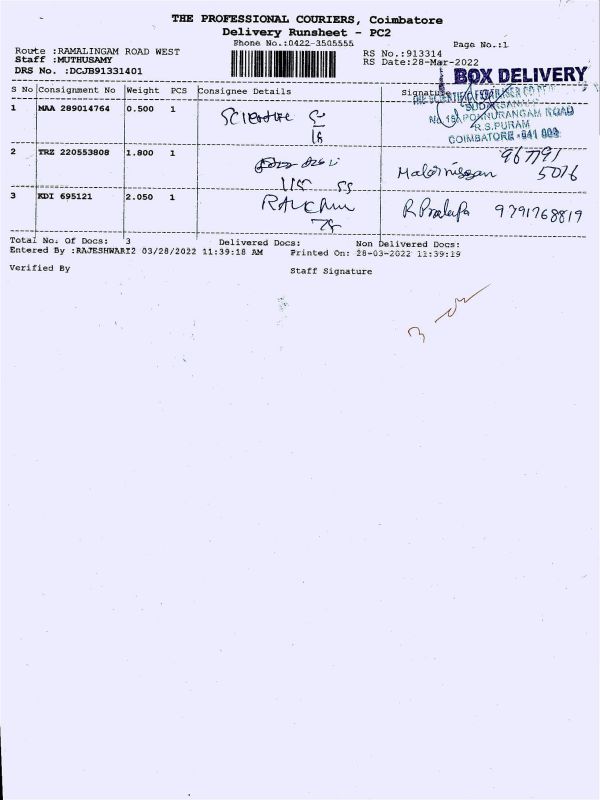 THE PROFESSIONAL COURIERS, Coimbatore
Delivery Runsheet - PC2
Phone No.:0422-3505555
Page No.:1
Route :RAMALINGAM ROAD WEST
RS No.:913314
Staff :MUTHUSAMY
RS Date:28-Mar-2022
DRS No. :DCJB91331401
BOX DELIVERY
S No Consignment No Weight PCS Consignee Details Signature
1 MAA 289014764 0.500 1
No R.S.PURAM
COIMBATORE
2 TRZ 220553808 1.800 1
967791
5016
3 KDI 695121 2.050 1 9791768819
Total No. Of Docs: 3 Delivered Docs: Non Delivered Docs:
Entered By :RAJESHWARI2 03/28/2022 11:39:18 AM Printed On: 28-03-2022 11:39:19
Verified By Staff Signature